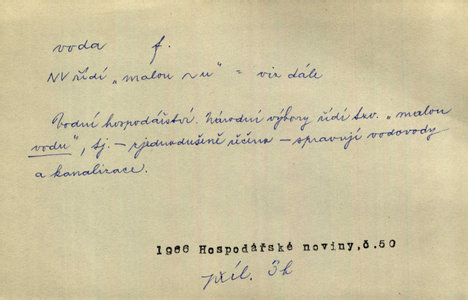 voda f.
NV řídí „malou ~u" = viz dále
Vodní hospodářství. Národní výbory řídí tzv. „malou
vodu", tj. — zjednodušeně řečeno — spravují vodovody
a kanalizace.
1966 Hospodářské noviny,č.50
příl. 3b